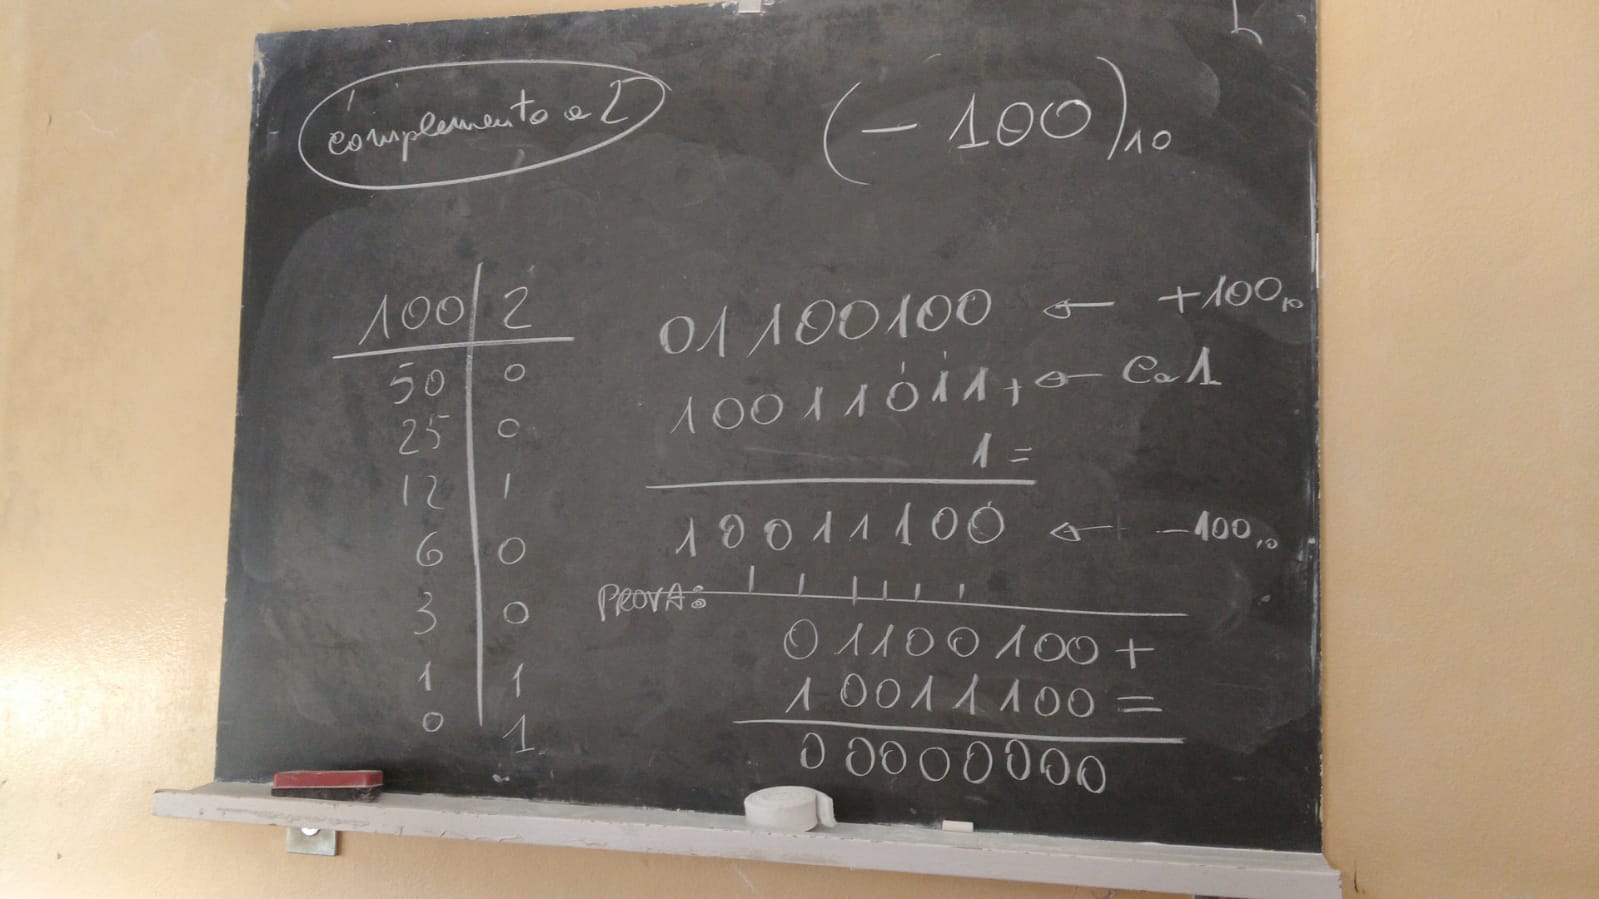 complemento a 2
(-100)10
100 2
50 0
25 0
12 1
6 0
3 0
1 1
0 1
01100100 ← +100₁₀
10011011+ ← Ca1
1=
10011100 ← -100₁₀
PROVA:
01100100+
10011100=
00000000